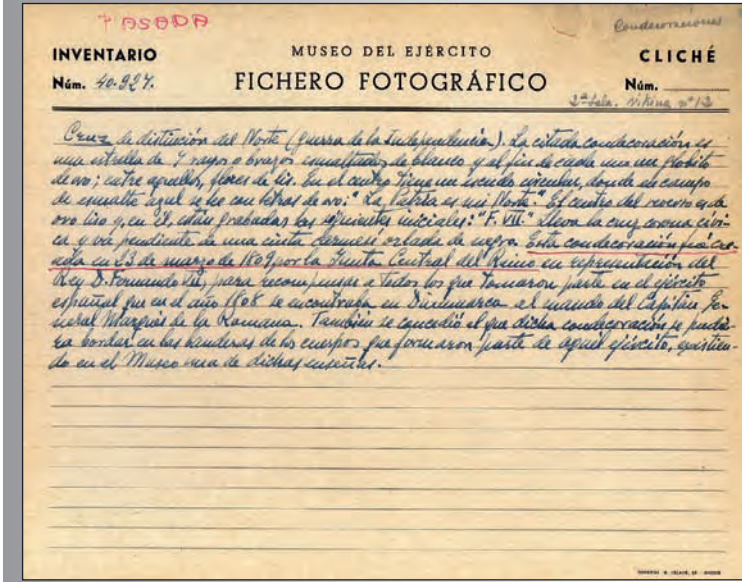 PASADA
Condecoraciones
INVENTARIO
MUSEO DEL EJÉRCITO
CLICHÉ
Núm. 40.927.
FICHERO FOTOGRÁFICO
Núm.
2ª Sala. Vitrina nº 12
Cruz de distinción del Norte (guerra de la Independencia). La citada condecoración es
una estrella de 7 rayos o brazos esmaltados de blanco y al fin de cada uno un globito
de oro; entre aquellos, flores de lis. En el centro tiene un escudo circular, donde en campo
de esmalte azul se lee con letras de oro: "La Patria es mi Norte". El centro del reverso es de
oro liso y, en él, están grabadas las siguientes iniciales: "F. VII." Lleva la cruz corona cívi-
ca y vá pendiente de una cinta carmesí orlada de negro. Esta condecoración fué cre-
ada en 23 de marzo de 1809 por la Junta Central del Reino en representación del
Rey D. Fernando VII, para recompensar a todos los que tomaron parte en el ejército
español que en el año 1808 se encontraba en Dinamarca al mando del Capitán Ge-
neral Marqués de la Romana. También se concedió el que dicha condecoración se pudie-
ra bordar en las banderas de los cuerpos que formaron parte de aquel ejército, existien-
do en el Museo una de dichas enseñas.